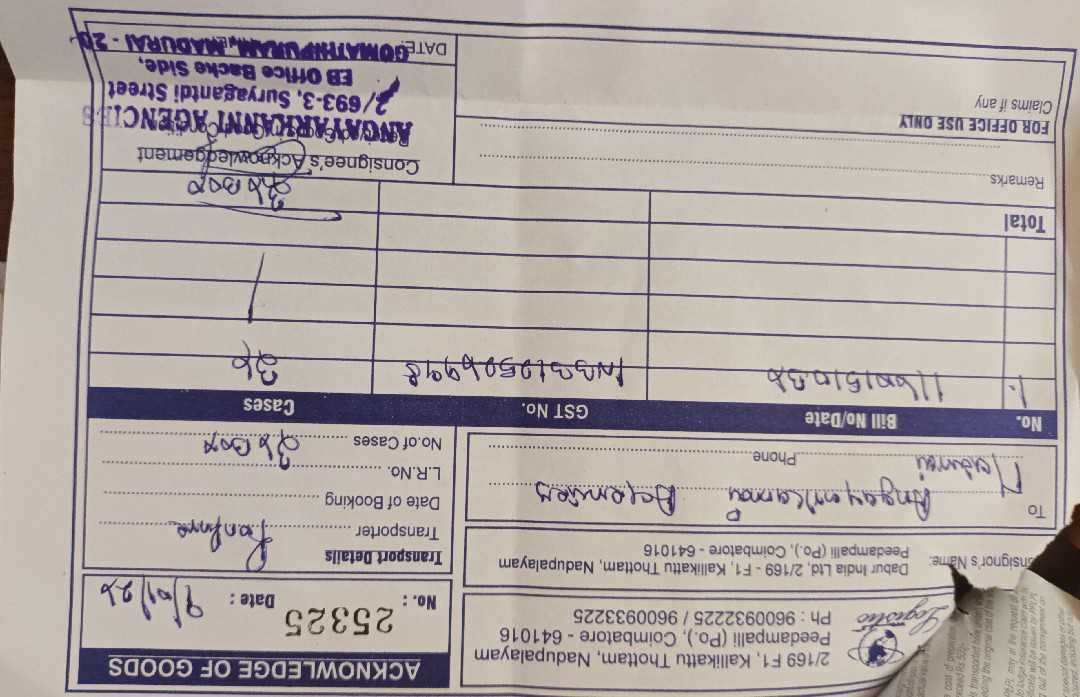 Logistic
2/169 F1, Kallikattu Thottam, Nadupalayam
Peedampalli (Po.), Coimbatore - 641016
Ph : 9600932225 / 9600933225
ACKNOWLEDGE OF GOODS
No. : 25325 Date :
nsignor's Name: Dabur India Ltd, 2/169 - F1, Kallikattu Thottam, Nadupalayam
Peedampalli (Po.), Coimbatore - 641016
To
Madurai
Phone
Transport Details
Transporter
Date of Booking
L.R.No.
No.of Cases 26 Box
No. Bill No/Date GST No. Cases
1. 26
Total 26 Box
Remarks
FOR OFFICE USE ONLY
Claims if any
Consignee's Acknowledgement
Received Goods in Good Condition
ANGAYARKANNI AGENCIES
2/693-3, Suryagantdi Street
EB Office Backe Side,
GOMATHIPURAM, MADURAI - 20
DATE: